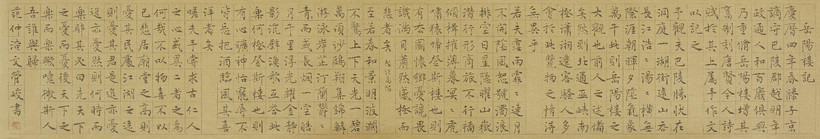 岳陽樓記
慶曆四年春滕子京
謫守巴陵郡越明年
政通人和百廢俱興
乃重脩岳陽樓增其
舊制刻唐賢今人詩
賦於其上屬予作文
以記之
予觀夫巴陵勝狀在
洞庭一湖銜遠山吞
長江浩浩湯湯橫無
際涯朝暉夕陰氣象
萬千此則岳陽樓之
大觀也前人之述備
矣然則北通巫峽南
極瀟湘遷客騷人多
會於此覽物之情得
無異乎
若夫霪雨霏霏連月
不開陰風怒號濁浪
排空日星隱曜山岳
潛形商旅不行檣
傾楫摧薄暮冥冥虎
嘯猿啼登斯樓也則
有去國懷鄉憂讒畏
譏滿目蕭然感極而
悲者矣
至若春和景明波瀾
不驚上下天光一碧
萬頃沙鷗翔集錦鱗
游泳岸芷汀蘭郁郁
青青而或長煙一空皓
月千里浮光耀金靜
影沉璧漁歌互答此
樂何極登斯樓也則有
心曠神怡寵辱
皆忘把酒臨風其喜
洋洋者矣
嗟夫予嘗求古仁人
之心或異二者之為
何哉不以物喜不以
己悲居廟堂之高則
憂其民處江湖之遠
則憂其君是進亦憂
退亦憂然則何時而
樂耶其必曰先天下
之憂而憂後天下之
樂而樂歟噫微斯人
吾誰與歸
范仲淹文管峻書